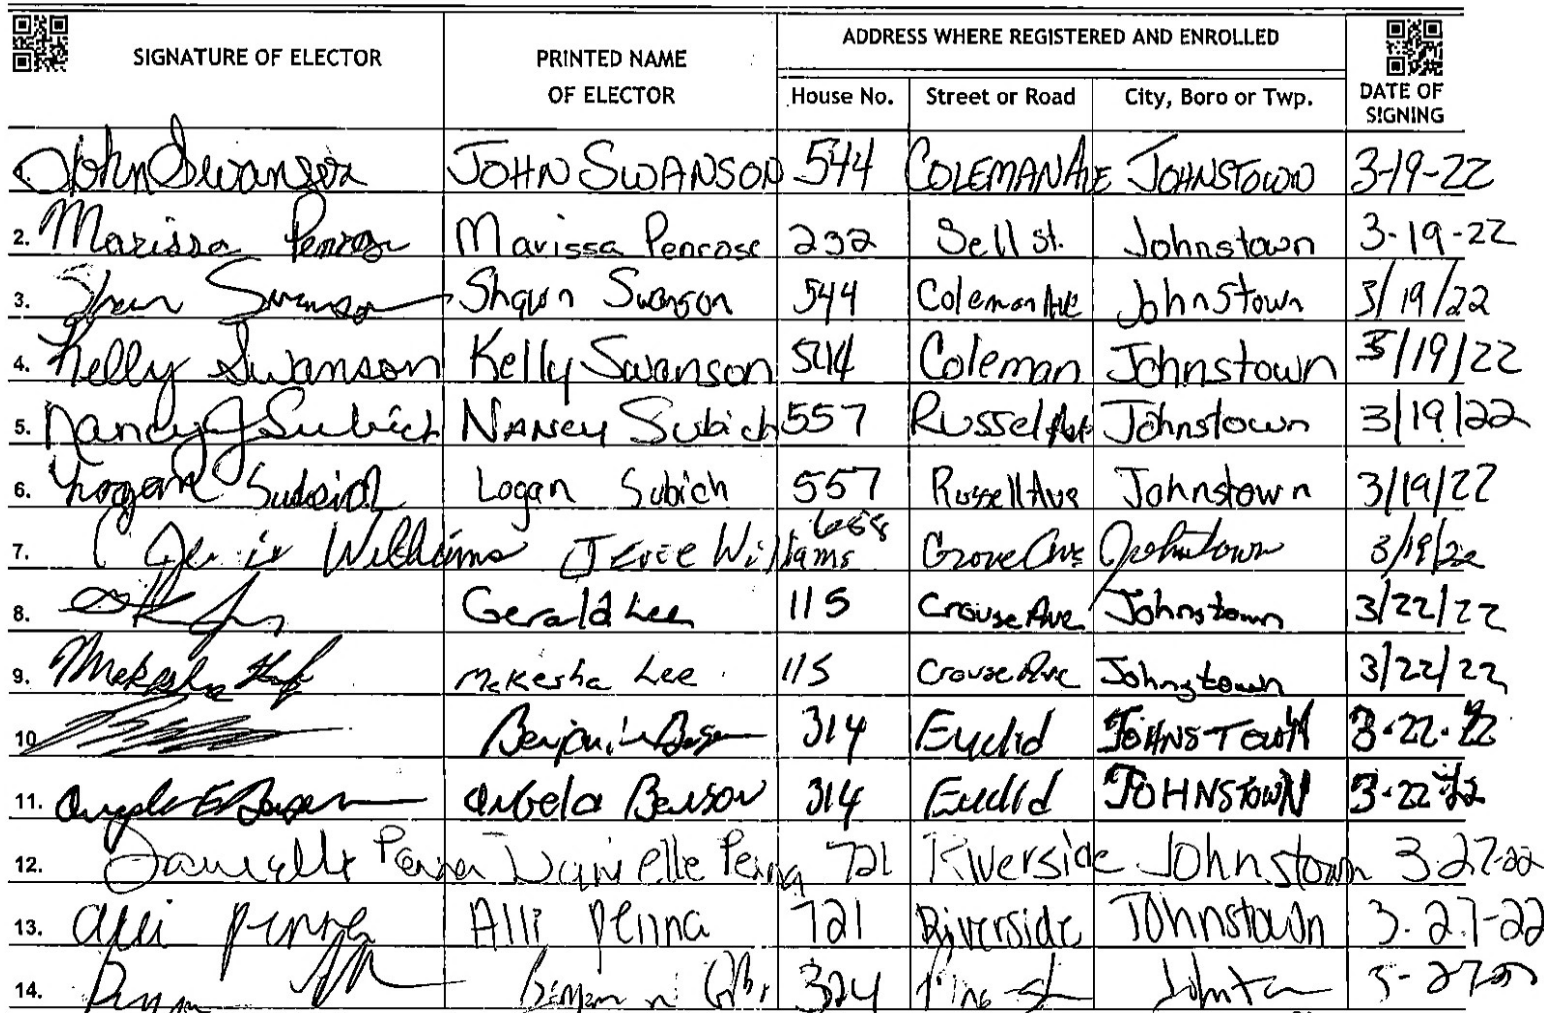 SIGNATURE OF ELECTOR PRINTED NAME OF ELECTOR ADDRESS WHERE REGISTERED AND ENROLLED DATE OF SIGNING
House No. Street or Road City, Boro or Twp.
1. John Swanson JOHN SWANSON 544 COLEMAN AVE JOHNSTOWN 3-19-22
2. Marissa Penrose Marissa Penrose 232 Sell st. Johnstown 3-19-22
3. Shawn Swanson Shawn Swanson 544 Coleman Ave Johnstown 3/19/22
4. Kelly Swanson Kelly Swanson 544 Coleman Johnstown 3/19/22
5. Nancy J Subich NANCY Subich 557 Russel Ave Johnstown 3/19/22
6. Logan Subich Logan Subich 557 Russell Ave Johnstown 3/19/22
7. Williams Williams Grove Ave Johnstown 3/19/22
8. Gerald Lee 115 Crouse Ave Johnstown 3/22/22
9. Mekesha Mekesha Lee 115 Crouse Ave Johnstown 3/22/22
10. 314 Euclid JOHNSTOWN 3-22-22
11. Angela Angela Benson 314 Euclid JOHNSTOWN 3-22-22
12. Danielle Penna Danielle Penna 721 Riverside Johnstown 3-27-22
13. Alli Penna Alli Penna 721 Riverside Johnstown 3-27-22
14. 324